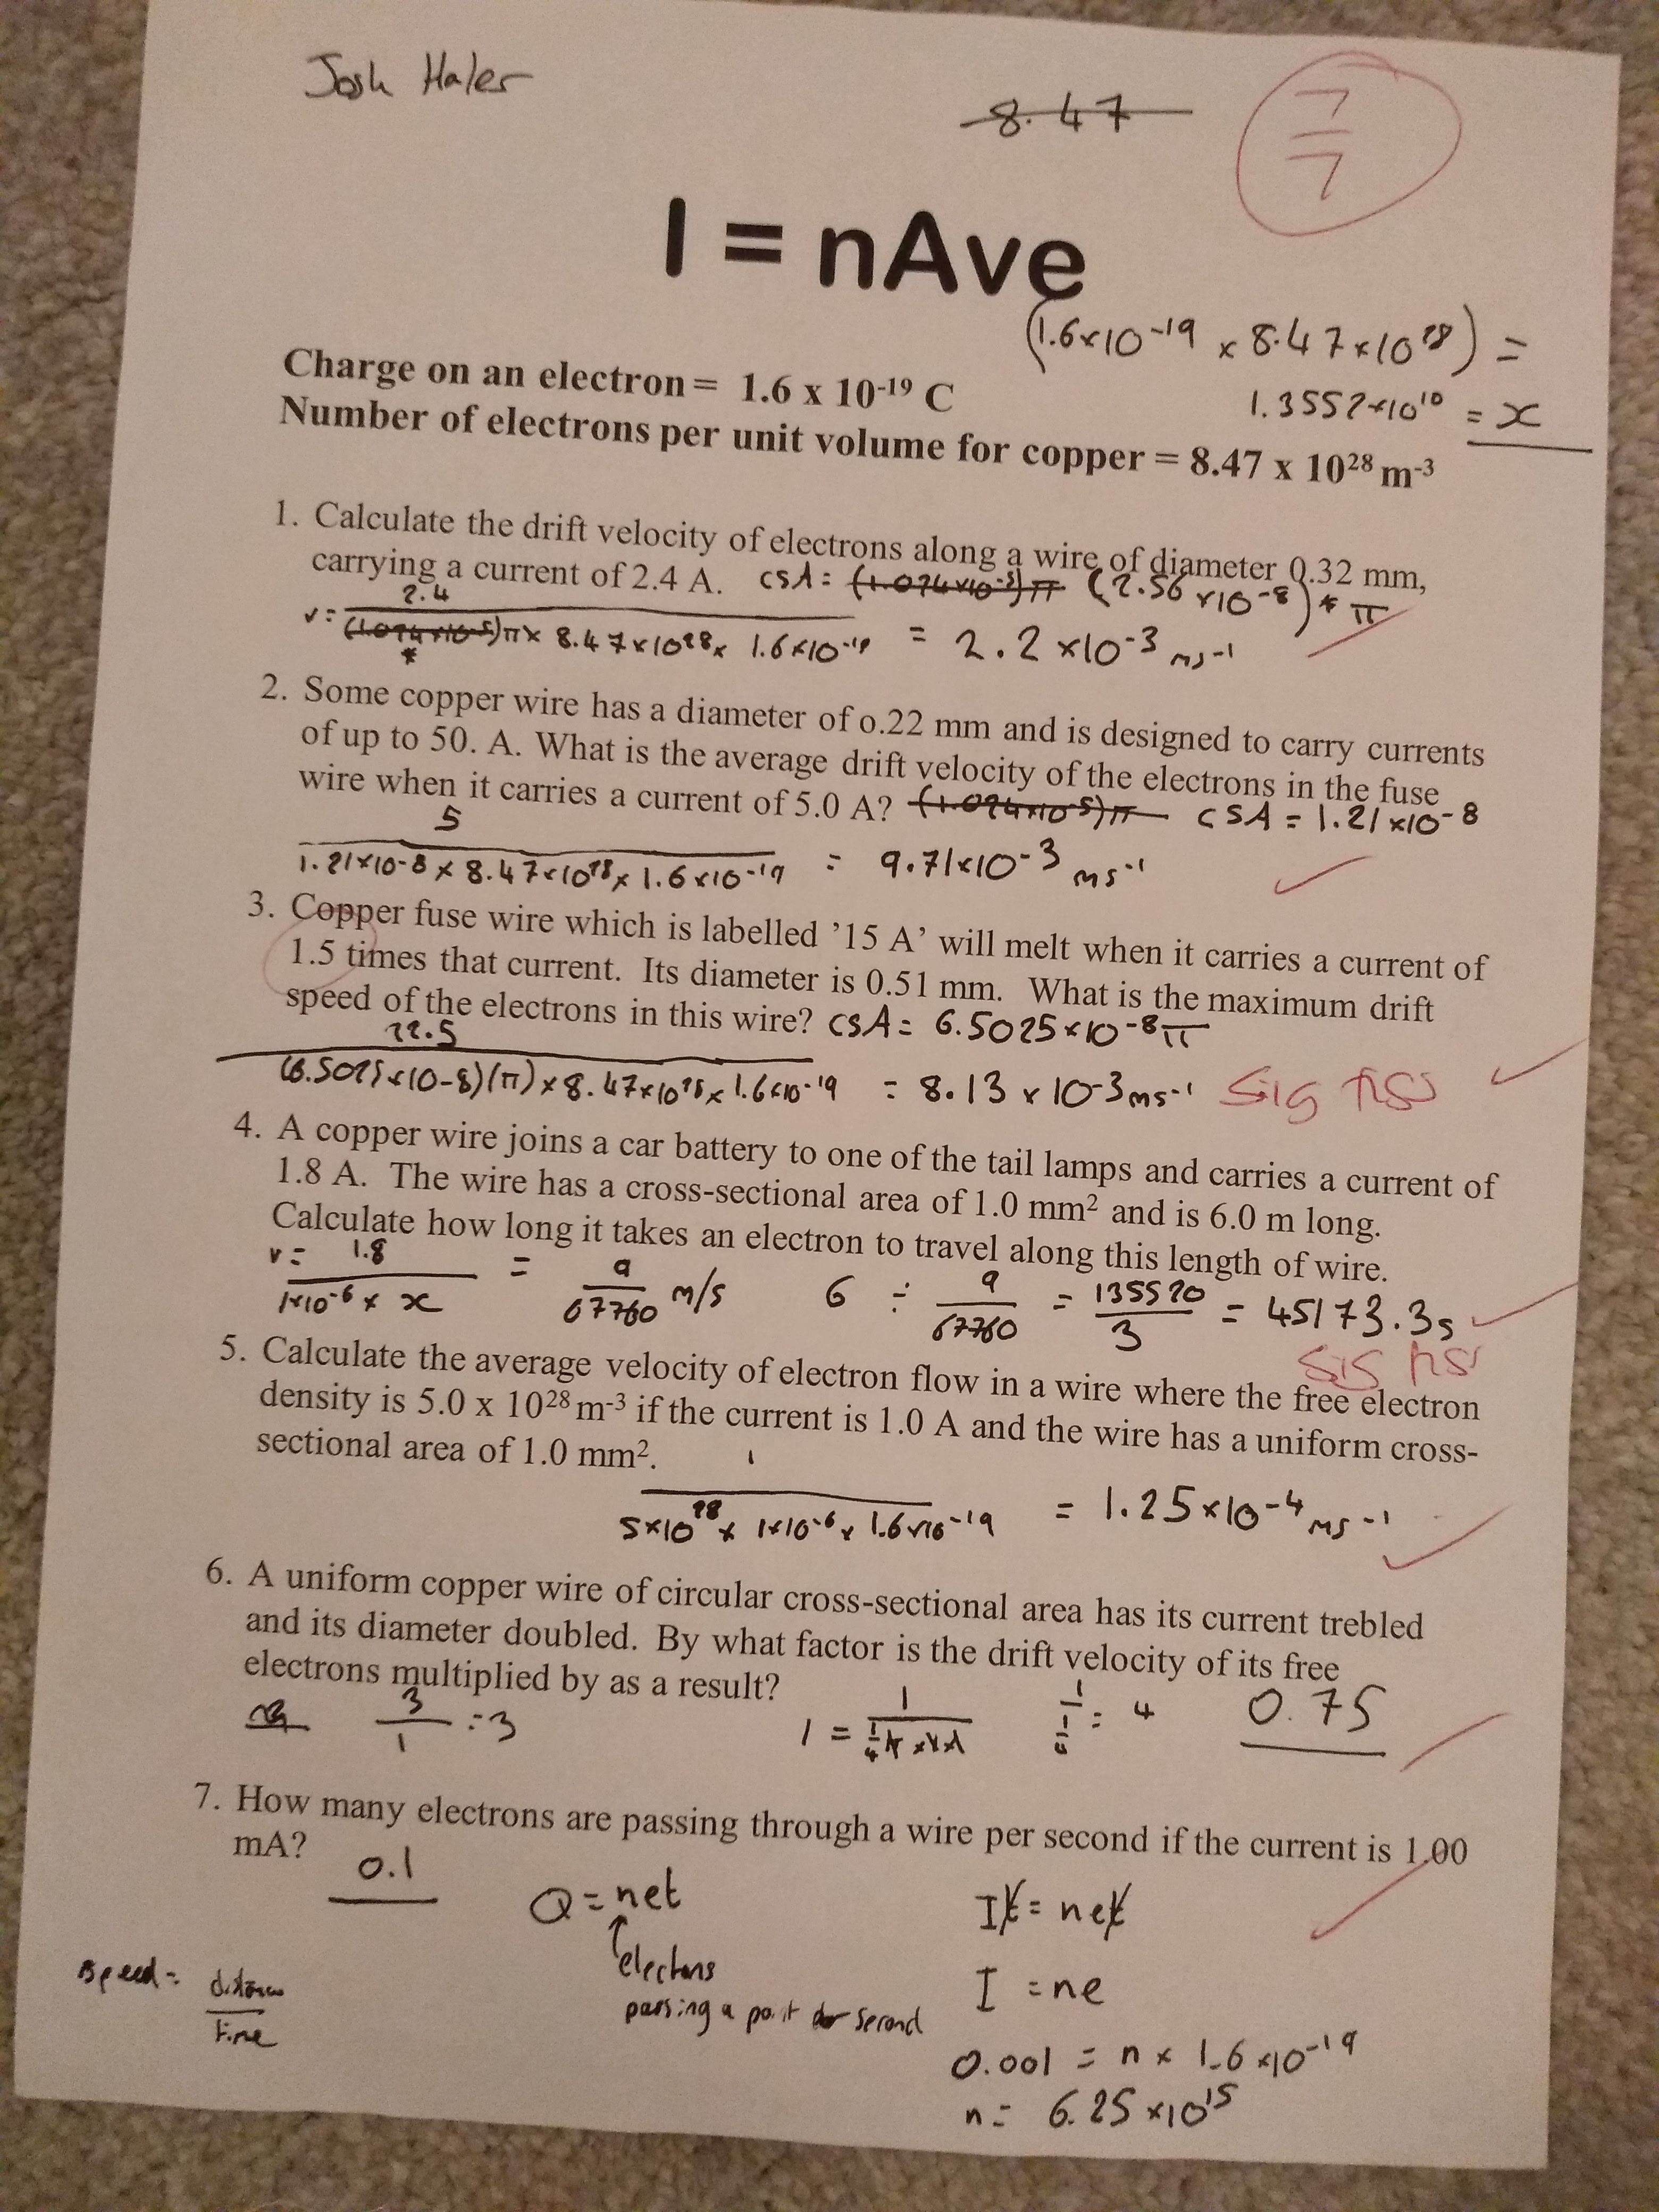 Josh Haler
8.47
7
7
I = nAve
(1.6×10⁻¹⁹ × 8.47×10²⁸) =
1.3552×10¹⁰ = x
Charge on an electron = 1.6 x 10⁻¹⁹ C
Number of electrons per unit volume for copper = 8.47 x 10²⁸ m⁻³
1. Calculate the drift velocity of electrons along a wire of diameter 0.32 mm,
carrying a current of 2.4 A. CSA = (1.024×10⁻⁵)π (2.56×10⁻⁸)*π
v = 2.4
(1.024×10⁻⁵)π × 8.47×10²⁸ × 1.6×10⁻¹⁹ = 2.2×10⁻³ ms⁻¹
*
2. Some copper wire has a diameter of o.22 mm and is designed to carry currents
of up to 50. A. What is the average drift velocity of the electrons in the fuse
wire when it carries a current of 5.0 A? (1.024×10⁻⁵)π CSA = 1.21×10⁻⁸
5
1.21×10⁻⁸ × 8.47×10²⁸ × 1.6×10⁻¹⁹ = 9.71×10⁻³ ms⁻¹
3. Copper fuse wire which is labelled ’15 A’ will melt when it carries a current of
1.5 times that current. Its diameter is 0.51 mm. What is the maximum drift
speed of the electrons in this wire? CSA = 6.5025×10⁻⁸π
22.5
(6.5025×10-8)(π) × 8.47×10²⁸ × 1.6×10⁻¹⁹ = 8.13 × 10⁻³ ms⁻¹ Sig figs
4. A copper wire joins a car battery to one of the tail lamps and carries a current of
1.8 A. The wire has a cross-sectional area of 1.0 mm² and is 6.0 m long.
Calculate how long it takes an electron to travel along this length of wire.
v = 1.8 = 9 m/s 6 ÷ 9 = 135520 = 45173.3s
1×10⁻⁶ × x 67760 67760 3
Sig figs
5. Calculate the average velocity of electron flow in a wire where the free electron
density is 5.0 x 10²⁸ m⁻³ if the current is 1.0 A and the wire has a uniform cross-
sectional area of 1.0 mm².
1
5×10²⁸ × 1×10⁻⁶ × 1.6×10⁻¹⁹ = 1.25×10⁻⁴ ms⁻¹
6. A uniform copper wire of circular cross-sectional area has its current trebled
and its diameter doubled. By what factor is the drift velocity of its free
electrons multiplied by as a result?
3 = 3 1 = 1 1 = 4 0.75
1
7. How many electrons are passing through a wire per second if the current is 1.00
mA?
0.1
Q = net It = net
electrons
passing a point per second
I = ne
Speed = distance
time
0.001 = n × 1.6×10⁻¹⁹
n = 6.25×10¹⁵